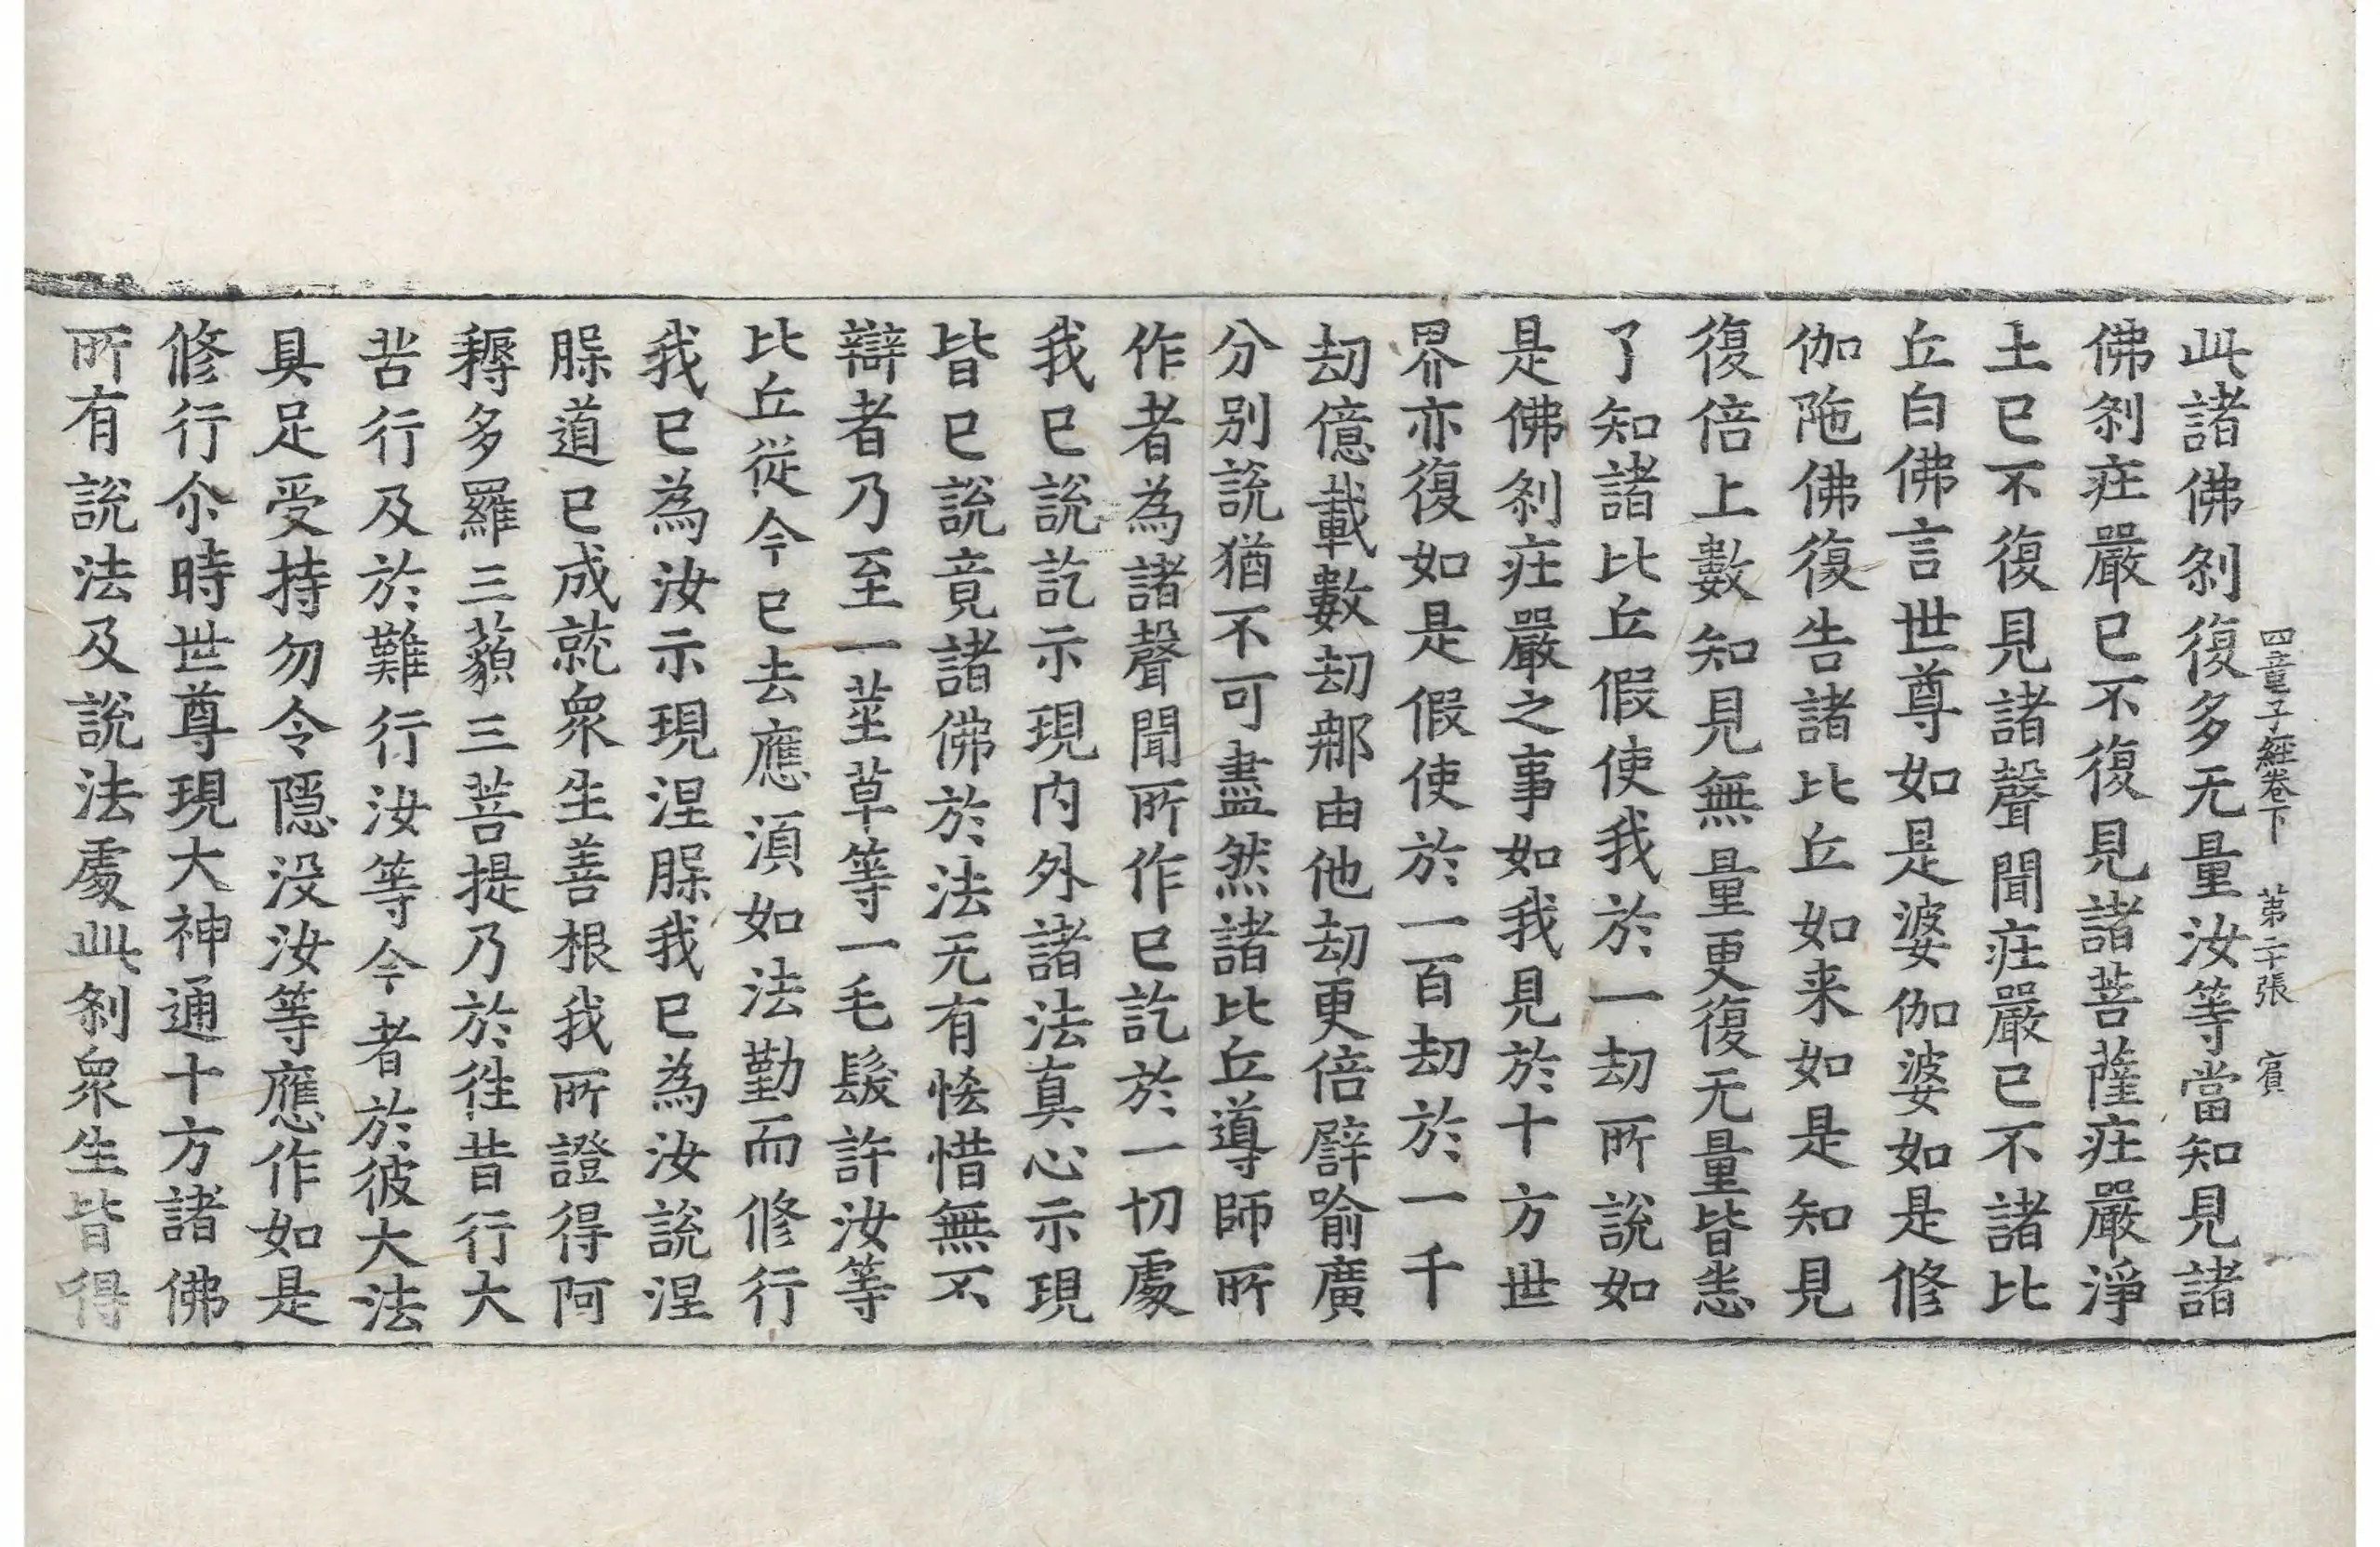 四童子經卷下　第二十張　賓
此諸佛刹復多无量汝等當知見諸
佛刹庄嚴已不復見諸菩薩庄嚴淨
土已不復見諸聲聞庄嚴已不諸比
丘白佛言世尊如是婆伽婆如是修
伽陁佛復告諸比丘如来如是知見
復倍上數知見無量更復无量皆悉
了知諸比丘假使我於一劫所說如
是佛刹庄嚴之事如我見於十方世
界亦復如是假使於一百劫於一千
劫億載數劫那由他劫更倍譬喻廣
分别説猶不可盡然諸比丘導師所
作者為諸聲聞所作已訖於一切處
我已説訖示現内外諸法真心示現
皆已說竟諸佛於法无有悋惜無不
辯者乃至一莖草等一毛髮許汝等
比丘從今已去應湏如法勤而修行
我已為汝示現涅槃我已為汝說涅
槃道已成就衆生善根我所證得阿
耨多羅三藐三菩提乃於往昔行大
苦行及於難行汝等今者於彼大法
具足受持勿令隱没汝等應作如是
修行尒時世尊現大神通十方諸佛
所有說法及說法處此刹衆生皆得